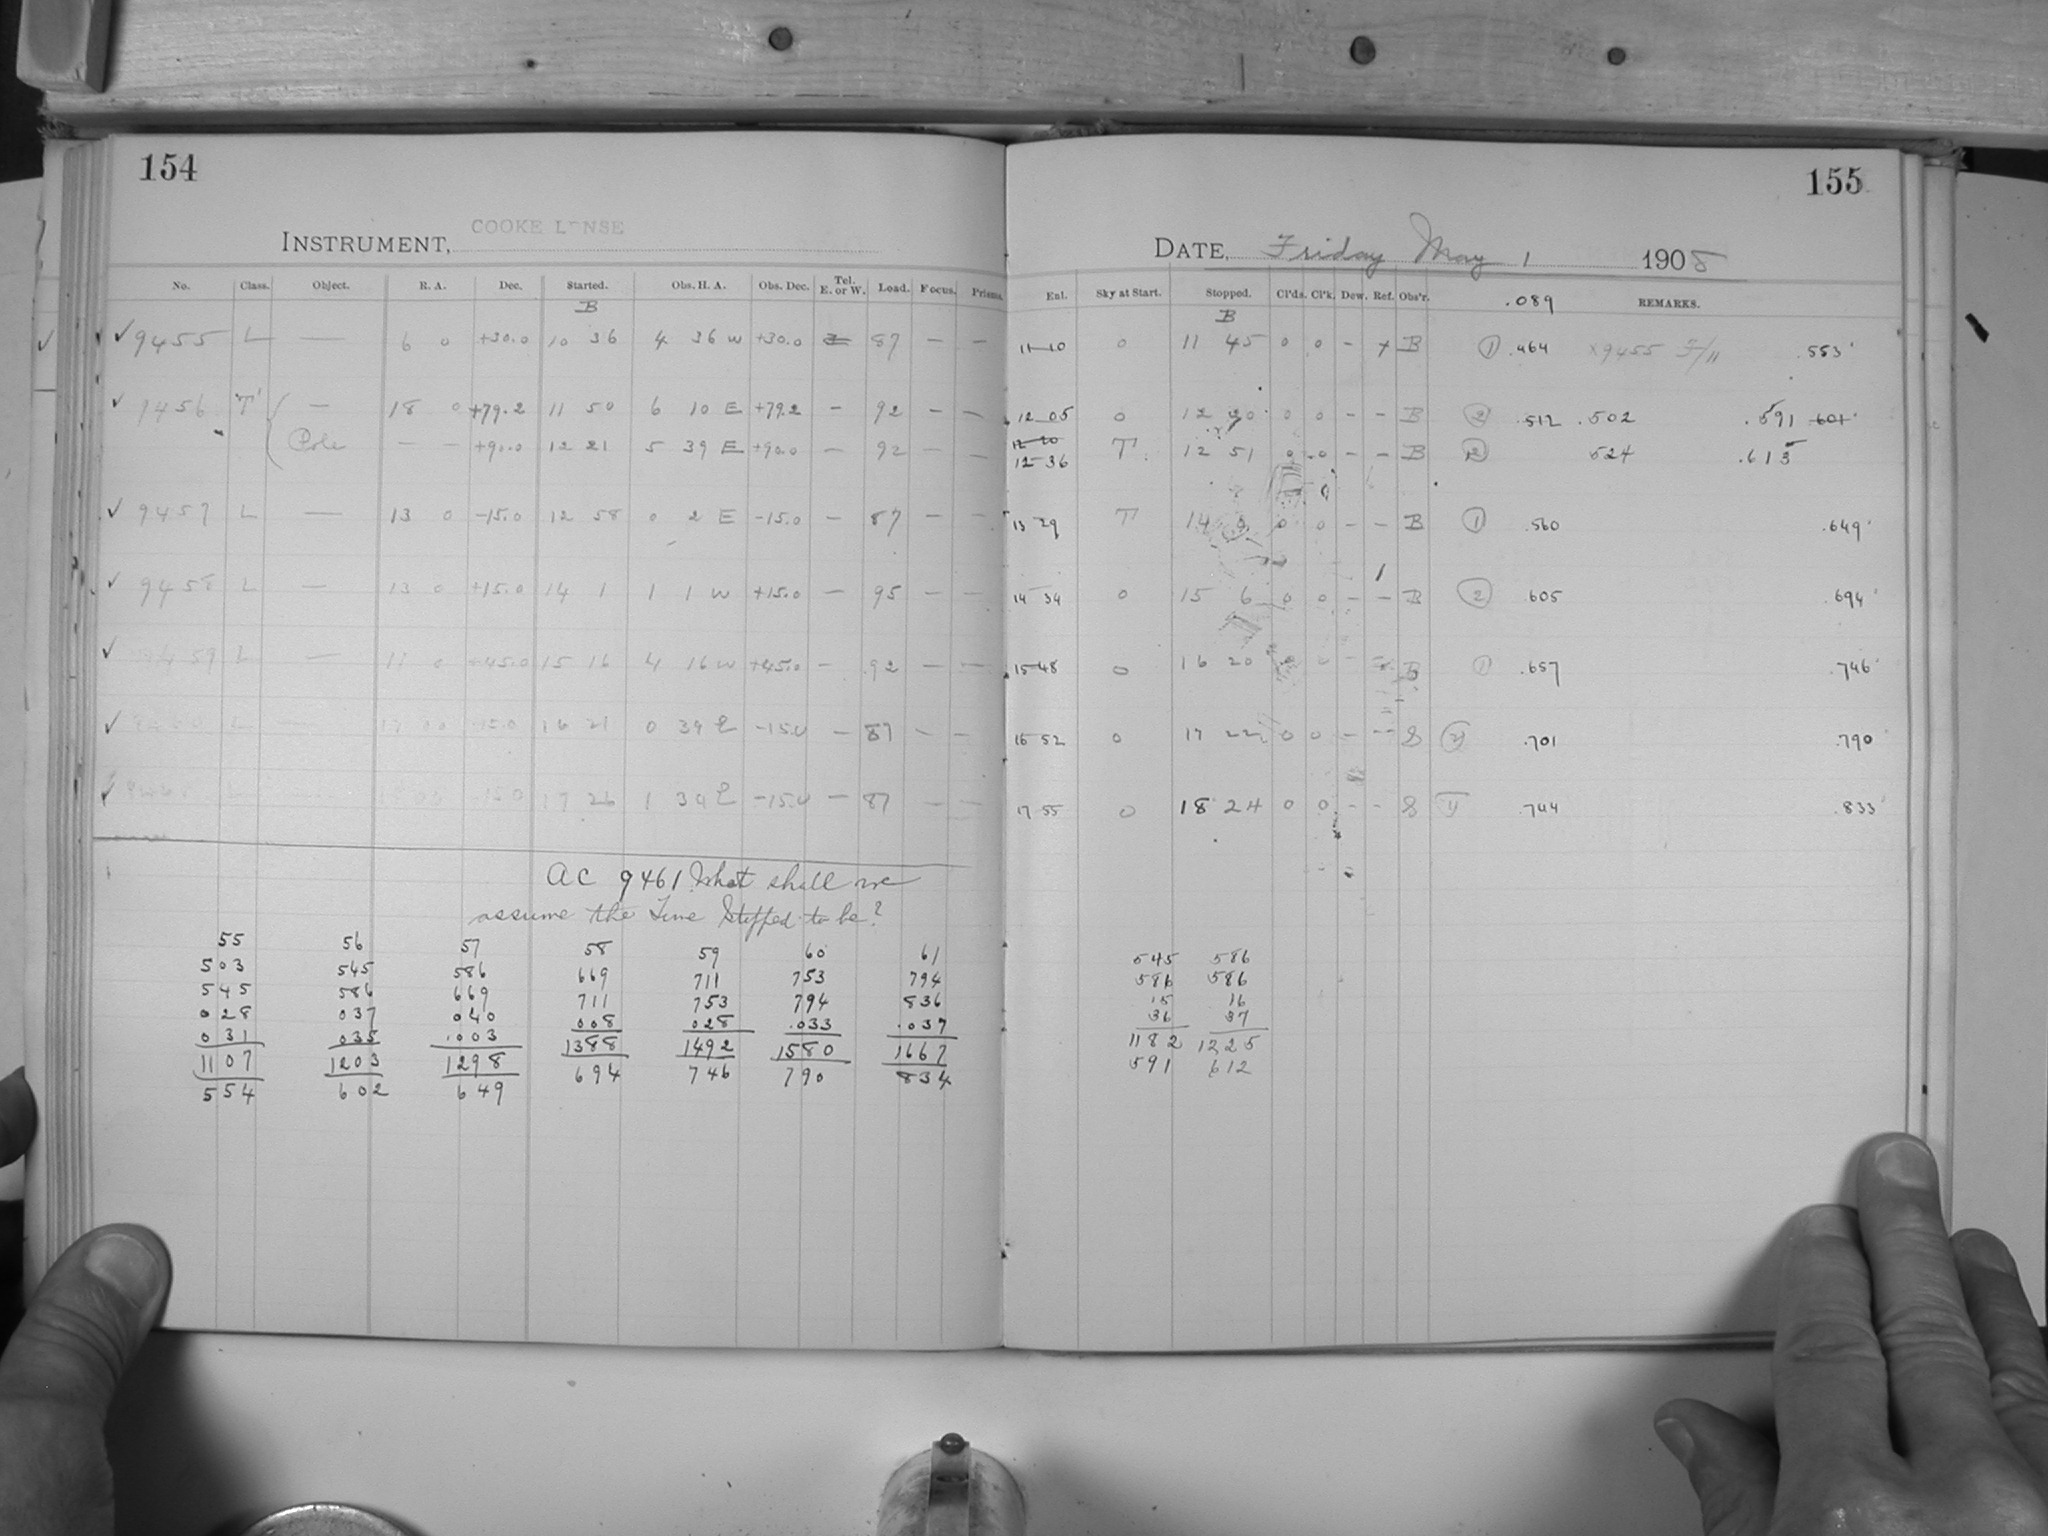 154
COOKE L NSE
INSTRUMENT,
No. Class. Object. R. A. Dec. Started. Obs. H. A. Obs. Dec. Tel. E. or W. Load. Focus. Prisms.
B
✓ 9455 L — 6 0 +30.0 10 36 4 36 W +30.0 87 — —
✓ 9456 T' — 18 0 +79.2 11 50 6 10 E +79.2 — 92 — —
Pole — — +90.0 12 21 5 39 E +90.0 — 92 — —
✓ 9457 L — 13 0 -15.0 12 58 0 2 E -15.0 — 87 — —
✓ 9458 L — 13 0 +15.0 14 1 1 1 W +15.0 — 95 — —
✓ 9459 L — 11 0 +45.0 15 16 4 16 W +45.0 — 92 — —
✓ L — -15.0 16 21 0 39 E -15.0 — 87 — —
✓ L — -15.0 17 26 1 34 E -15.0 — 87 — —
AC 9461 What shall we
assume the Time Stopped to be?
55 56 57 58 59 60 61
503 545 586 669 711 753 794
545 586 669 711 753 794 836
028 037 040 008 028 .033 .037
031 035 .003 1388 1492 1580 1667
1107 1203 1298 694 746 790 834
554 602 649
155
DATE, Friday May 1 1908
Enl. Sky at Start. Stopped. Cl'ds. Cl'k. Dew. Ref. Obs'r. .089 REMARKS.
B
11 10 0 11 45 0 0 - + B 1 .464 x9455 F/11 .553
12 05 0 12 20 0 0 - - B 2 .512 .502 .591 .601
12 20
12 36 T 12 51 0 0 - - B 2 524 .613
13 29 T 14 0 0 0 - - B 1 .560 .649
14 34 0 15 6 0 0 - - B 2 .605 .694
15 48 0 16 20 0 0 - - B 1 .657 .746
16 52 0 17 22 0 0 - - S 2 .701 .790
17 55 0 18 24 0 0 - - S 1 .744 .833
545 586
586 586
15 16
36 37
1182 1225
591 612